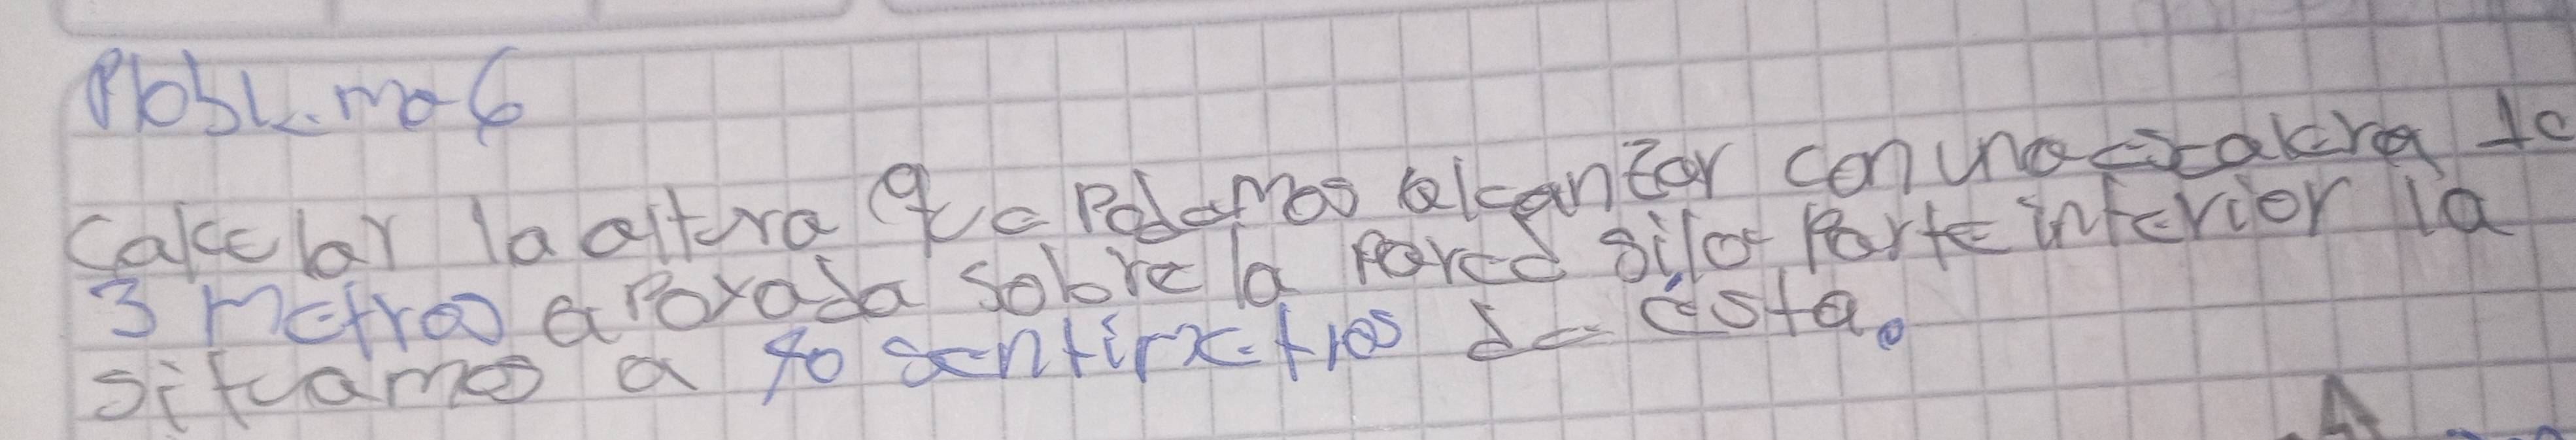 Problema 6
Calcular la altura que podemos alcanzar con una escalera de
3 metros apoyada sobre la pared si la parte inferior la
situamos a 70 sentimetros de esta.